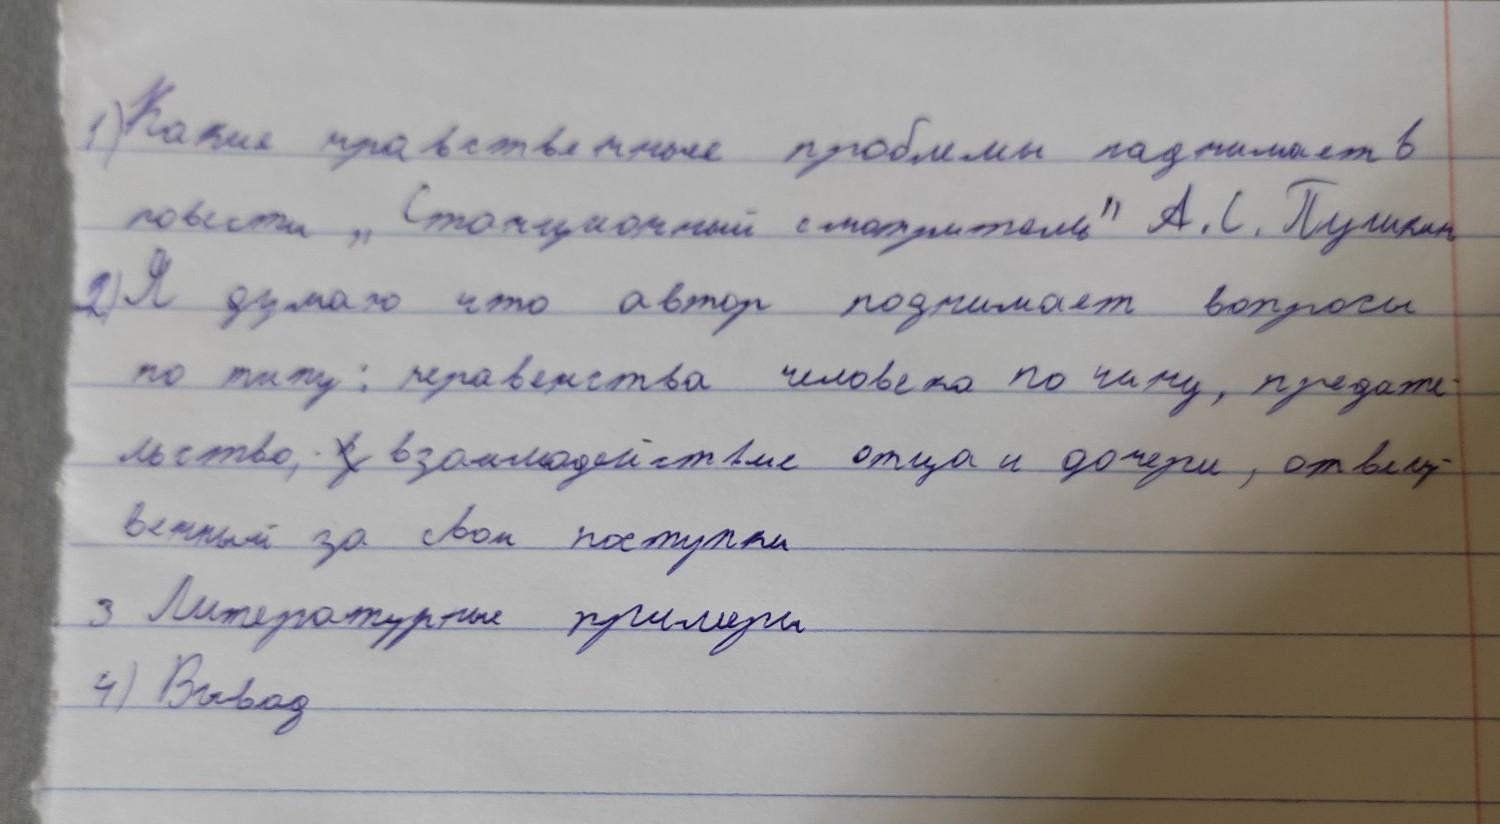 1) Какие нравственные проблемы паднимает в
повести „Станционный смотритель" А.С. Пушкин
2) Я думаю что автор поднимает вопросы
по типу: неравенства человека по чину, предате-
льство, взаимодействие отца и дочери, ответст-
венный за свои поступки
3 Литературные примеры
4) Вывод